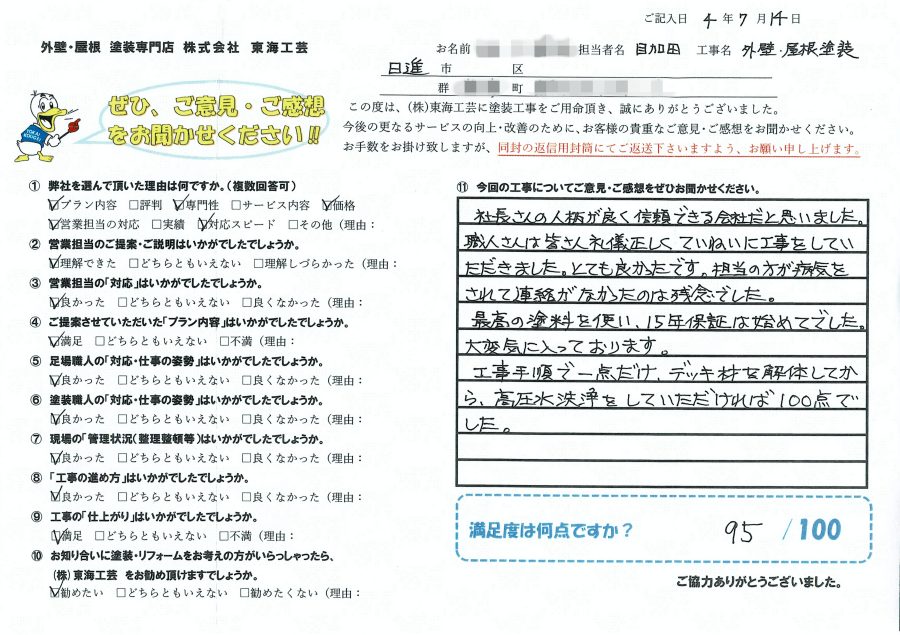 ご記入日 4 年 7 月 14 日
外壁・屋根 塗装専門店 株式会社 東海工芸
お名前 担当者名 目加田 工事名 外壁・屋根塗装
日進 市 区
郡 町
ぜひ、ご意見・ご感想
をお聞かせください!!
この度は、(株)東海工芸に塗装工事をご用命頂き、誠にありがとうございました。
今後の更なるサービスの向上・改善のために、お客様の貴重なご意見・ご感想をお聞かせください。
お手数をお掛け致しますが、同封の返信用封筒にてご返送下さいますよう、お願い申し上げます。
① 弊社を選んで頂いた理由は何ですか。(複数回答可)
☑プラン内容 □評判 ☑専門性 □サービス内容 ☑価格
☑営業担当の対応 □実績 ☑対応スピード □その他(理由:
② 営業担当のご提案・ご説明はいかがでしたでしょうか。
☑理解できた □どちらともいえない □理解しづらかった(理由:
③ 営業担当の「対応」はいかがでしたでしょうか。
☑良かった □どちらともいえない □良くなかった(理由:
④ ご提案させていただいた「プラン内容」はいかがでしたでしょうか。
☑満足 □どちらともいえない □不満(理由:
⑤ 足場職人の「対応・仕事の姿勢」はいかがでしたでしょうか。
☑良かった □どちらともいえない □良くなかった(理由:
⑥ 塗装職人の「対応・仕事の姿勢」はいかがでしたでしょうか。
☑良かった □どちらともいえない □良くなかった(理由:
⑦ 現場の「管理状況(整理整頓等)はいかがでしたでしょうか。
☑良かった □どちらともいえない □良くなかった(理由:
⑧ 「工事の進め方」はいかがでしたでしょうか。
☑良かった □どちらともいえない □良くなかった(理由:
⑨ 工事の「仕上がり」はいかがでしたでしょうか。
☑満足 □どちらともいえない □不満(理由:
⑩ お知り合いに塗装・リフォームをお考えの方がいらっしゃったら、
(株)東海工芸 をお勧め頂けますでしょうか。
☑勧めたい □どちらともいえない □勧めたくない(理由:
⑪ 今回の工事についてご意見・ご感想をぜひお聞かせください。
社長さんの人柄が良く信頼できる会社だと思いました。
職人さんは皆さん礼儀正しくていねいに工事をしてい
ただきました。とても良かったです。担当の方が病気を
されて連絡がなかったのは残念でした。
最高の塗料を使い、15年保証は始めてでした。
大変気に入っております。
工事手順で一点だけ、デッキ材を解体してか
ら、高圧水洗浄をしていただければ100点で
した。
満足度は何点ですか? 95 /100
ご協力ありがとうございました。